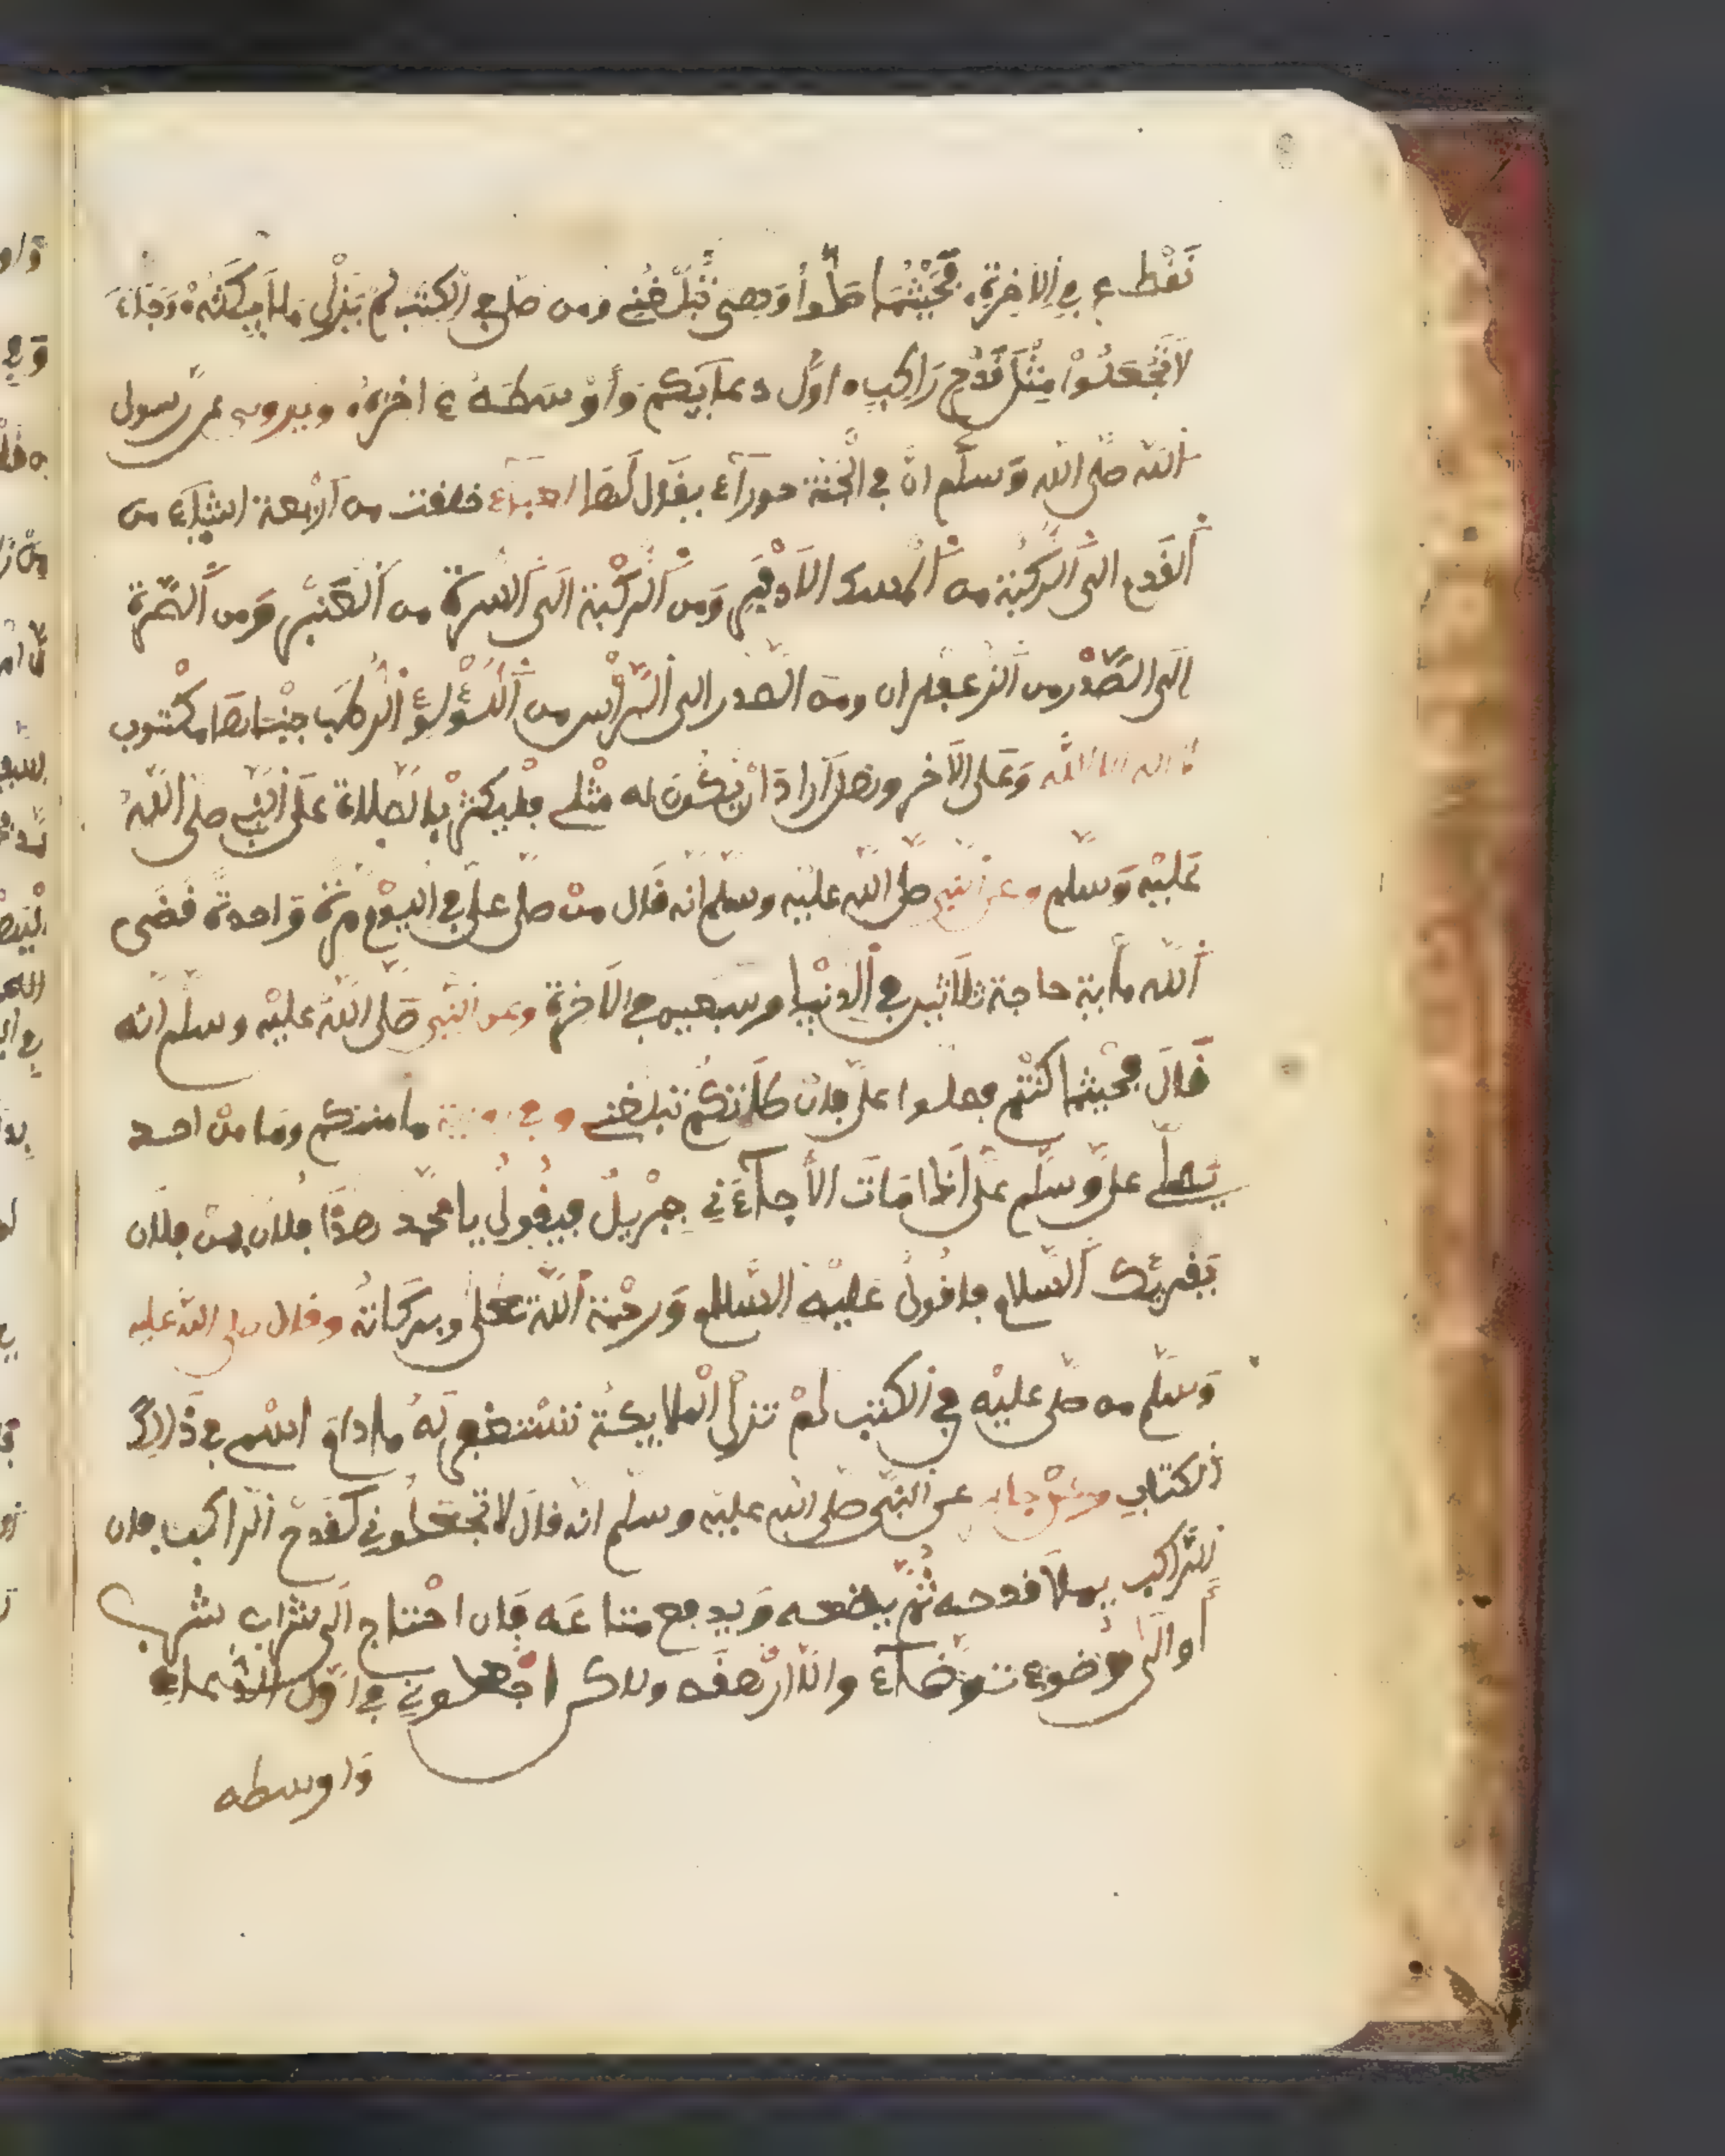 نَقْطع في الاخرة. فَحَيْثُمَا صَلّوا وَهي تُبَلِّغُنِي ومن صلى في الكتب لم يَزْلِ مَلَايِكَتُهُ وَجَاءَ
لَا تَجْعَلُوْا مِثْلَ قَدَحِ رَاكِبٍ اوَّل دعايكم وَأوْسَطَهُ ءَاخِرَهُ ويروى عن رّسول
الله صلى الله وَسلّم انّ في الجَنّة حورَآءَ يقال لَها العَيْنَاء خلفت من اَرْبعة اشيَآء من
اَلقَدم الى اَلرّكْبَة من اَلْمسك الَاذْفَرِ وَمن اَلرّكْبَة الَى اَلسُّرة من اَلعَنْبَر وَمن اَلسُّرة
اِلَى الصَّدْر من اَلزعفران ومن الصّدر الى اَلرّأس من اَلُّؤْلُؤِ اَلرطَب جبْنَاتهَا مكْتوب
لا اله الا الله وَعَلى الَاخر وهل اَرادَ انْ يّكُونَ له مثْلي فليكثرْ بالصّلاة عَلَى النّبي صلى اللهُ
عَليْه وَسلم وعن النبي صلى الله عليْه وسلّم انه قَال منْ صلّى عليّ في اليوْم مرّة وَاحدة قضى
اَلله مأية حاجة ثلَاثين في اَلدنْيا وسبعين في الَاخرة وعن النّبي صَلى اللهُ عليْه وسلم انّه
قَالَ فحيْثما كنْتم فصلوا علىّ فان صَلَاتكُمْ تبلغني وفي رواية ما منكم ومَا منْ احد
يصلّي عليّ وسلّم علىّ اِذا مَاتَ الاَّ جآءَنِي جبْريلُ فيقولُ يا محمّد هذَا فلان بن فلان
يَقْريُك اَلسّلام فاقُولُ عَليْه السّلام وَرحْمة اَلله تعلى وبركاتهُ وقال صلى الله عليه
وَسلّم من صلّى عليْه في الكتب لمْ تزلِ الْملايكة تسْتغفر لَهُ ما دام اسْمي في ذَالِكَ
الكتابِ وعن جابر عن النّبي صلى الله عليْه وسلّم انّه قالَ لا تجْعلُونِي كَقَدَحِ الرّاكب فان
الرّاكب يملَا قدحه ثُمَّ يضعه وَيرفع متاعَه فَان احْتاج الَى شراب شرب
أو الَى وُضوء توَضّأَ والّا ارْهفَه ولاكن اجْعلوني في اوّل الدّعاء
وَاوسطه